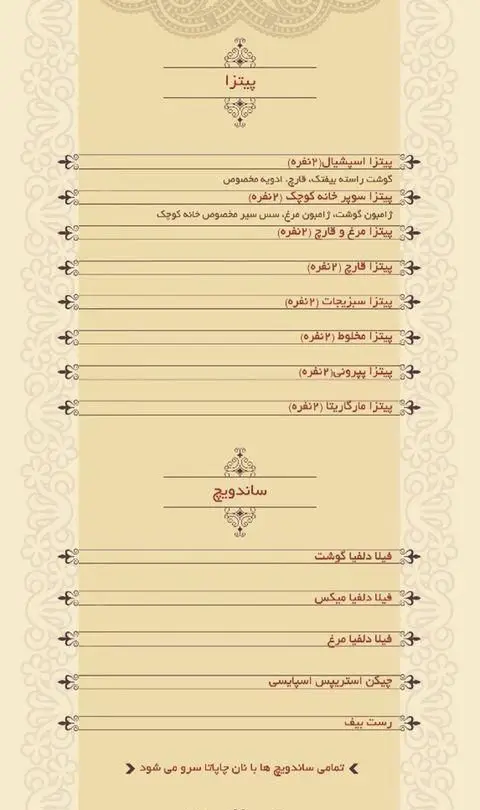 پیتزا
پیتزا اسپشیال(۲نفره)
گوشت راسته بیفتک، قارچ، ادویه مخصوص
پیتزا سوپر خانه کوچک (۲نفره)
ژامبون گوشت، ژامبون مرغ، سس سیر مخصوص خانه کوچک
پیتزا مرغ و قارچ (۲نفره)
پیتزا قارچ (۲نفره)
پیتزا سبزیجات (۲نفره)
پیتزا مخلوط (۲نفره)
پیتزا پپرونی(۲نفره)
پیتزا مارگاریتا (۲نفره)
ساندویچ
فیلا دلفیا گوشت
فیلا دلفیا میکس
فیلا دلفیا مرغ
چیکن استریپس اسپایسی
رست بیف
تمامی ساندویچ ها با نان چاپاتا سرو می شود